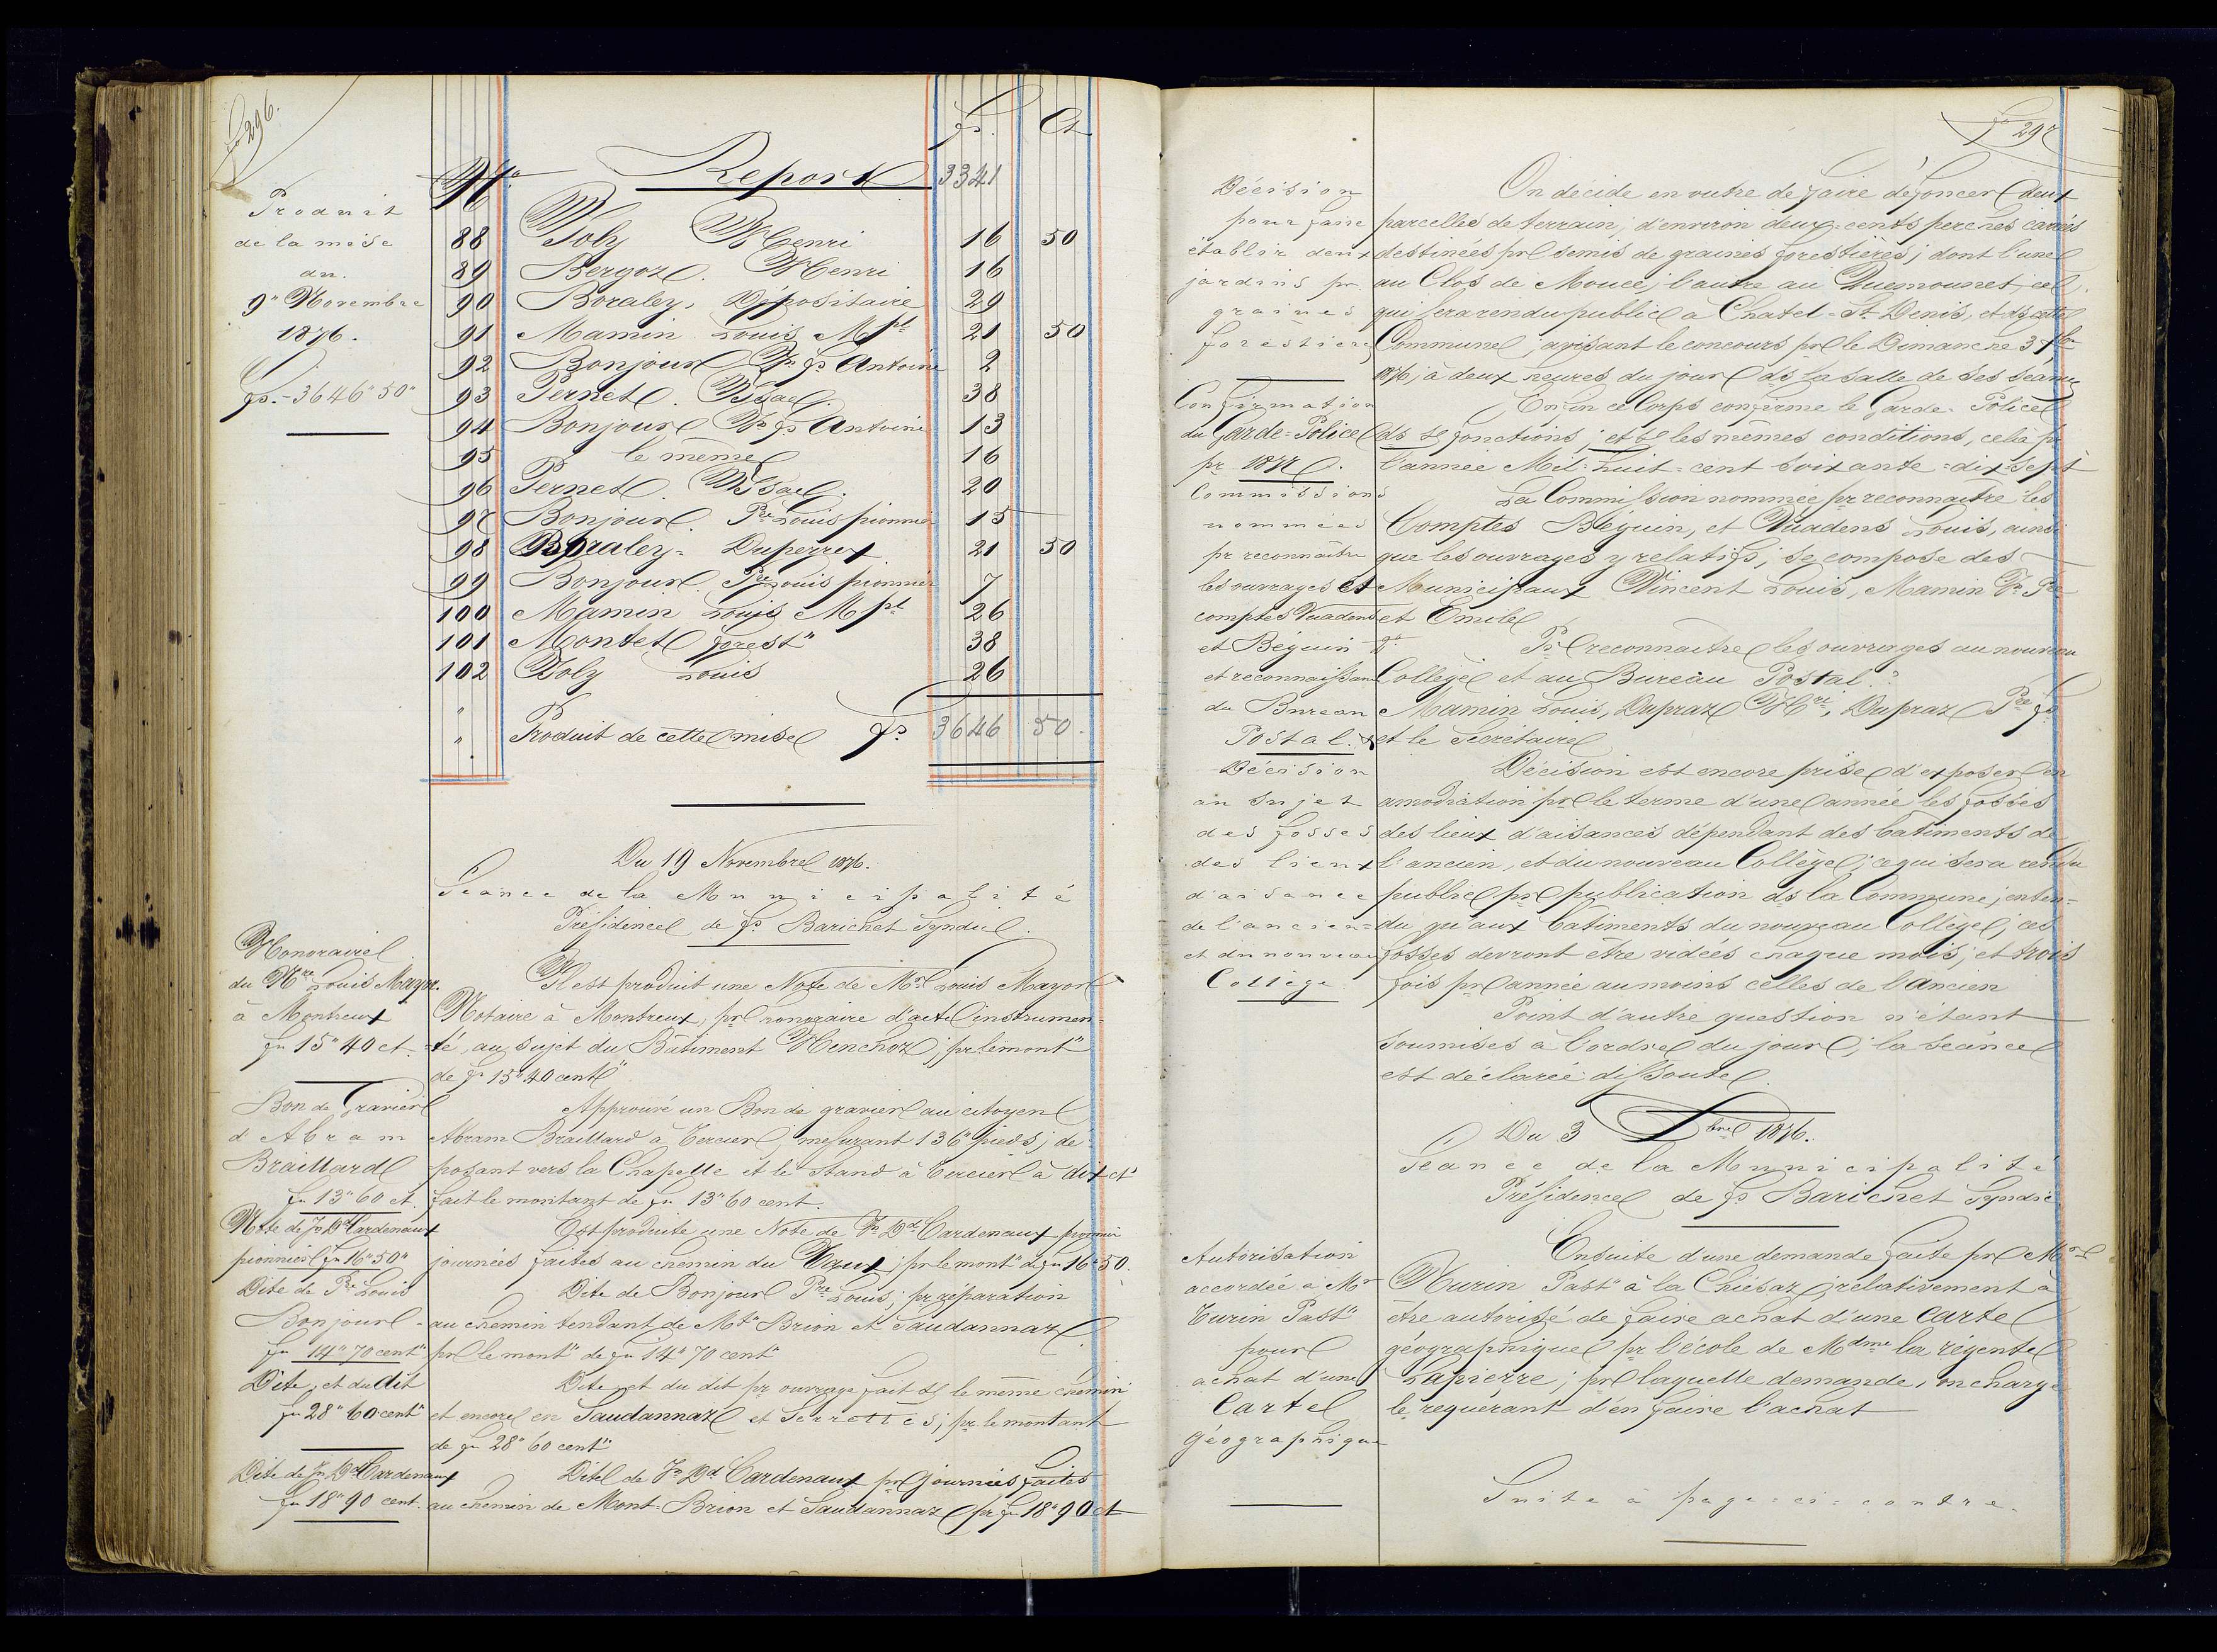 fo 296.
fs. Ct
No Report 3341
Produit
de la mise
du
9" Novembre
1876.
fs. - 3646" 50"
88 Joly Henri 16 50
89 Bergoz. Henri 16
90 Boraley, Dépositaire 29
91 Mamin Louis Mpl 21 50
92 Bonjour Fs fs Antoine 2
93 Pernet. Isaac. 38
94 Bonjour Fs fs Antoine 13
95 le même 16
96 Pernet. Isaac. 20
97 Bonjour. Pre Louis pionnier 15
98 Boraley= Duperrex 21 50
99 Bonjour. Pre Louis pionnier 7
100 Mamin Louis Mpl 26
101 Montet forest" 38
102 Joly Louis 26
" Produit de cette mise fs. 3646 50.
Du 19 Novembre 1876.
Séance de la Municipalité
Présidence de fs. Barichet Syndic.
Honoraire
du Nre Louis Mayor.
à Montreux
fr 15" 40 ct.
Il est produit une Note de Mr Louis Mayor
Notaire à Montreux, pr honoraire d'acte instrumen-
té, au sujet du Bâtiment Henchoz; pr le mont"
de fr 15" 40 cent"
Bon de Gravier
d'Abram
Braillard
fr 13" 60 ct
Approuvé un Bon de gravier au citoyen
Abram Braillard à Tercier, mesurant 136" pieds; dé-
posant vers la Chapelle et le Stand à Tercier à dix ct
fait le montant de fr 13" 60 cent.
Note de Jn Dd Cardenaux
pionnier fr 16" 50"
Est produite une Note de Jn Dd Cardenaux pionnier
journées faites au chemin du Vaux; pr le mont" de fr 16" 50.
Dite de Pre Louis
Bonjour
fr 14" 70 cent"
Dite de Bonjour Pre Louis; pr réparation
au chemin tendant de Mt" Brion et Saudannaz
pr le mont" de fr 14" 70 cent"
Dite, et du dit
fr 28" 60 cent"
Dite, et du dit pr ouvrage fait ds le même chemin
et encore en Saudannaz et Serrettes; pr le montant
de fr 28" 60 cent"
Dite de Jn Dd Cardenaux
fr 18" 90 cent.
Dite de Jn Dd Cardenaux pr journées faites
au chemin de Mont=Brion et Saudannaz pr fr 18" 90 ct
fo 297
Décision
pour faire
établir deux
jardins pr
graines
forestières
On décide en outre de faire défoncer deux
parcelles de terrain, d'environ deux=cents perches carrées
destinées pr semis de graines forestières; dont l'une
au Clos de Moucé, l'autre au ce
qui sera rendu public à Chatel=St Denis, et ds cette
Commune; avisant le concours pr le Dimanche 3 Xbre
1876, à deux heures du jour ds la salle de ses séances
Confirmation
du Garde=Police
pr 1877.
Enfin ce Corps confirme le Garde=Police
ds ses fonctions; et ss les mêmes conditions, cela pr
l'année Mil=huit=cent soixante=dix=sept
Commissions
nommées
pr reconnaitre
les ouvrages et
comptes Vuadens
et Béguin
et reconnaissance
du Bureau
Postal.
La Commission nommée pr reconnaitre les
Comptes Béguin, et Vuadens Louis, ainsi
que les ouvrages y relatifs, se compose des
Municipaux Vincent Louis, Mamin Fs Pre
et Emile
Pr reconnaitre les ouvrages au nouveau
Collège et au Bureau Postal:
Mamin Louis, Dupraz Hri, Dupraz Pre fs
et le Secrétaire
Décision
au sujet
des fosses
des lieux
d'aisance
de l'ancien=
et du nouveau
Collège
Décision est encore prise d'exposer en
amodiation pr le terme d'une année les fosses
des lieux d'aisances dépendant des batiments de
l'ancien, et du nouveau Collège; ce qui sera rendu
public pr publication ds la Commune; enten-
du qu'aux batiments du nouveau Collège; ces
fosses devront être vidées chaque mois, et trois
fois pr année au moins celles de l'ancien
Point d'autre question n'étant
soumises à l'ordre du jour; la séance
est déclarée dissoute.
Du 3 Xbre 1876.
Séance de la Municipalité
Présidence de fs Barichet Syndic
Autorisation
accordée à Mr
Turin Past"
pour
achat d'une
Carte
géographique
Ensuite d'une demande faite pr Mr
Turin Past" à la Chiésaz relativement à
être autorisé de faire achat d'une Carte
géographique pr l'école de Mdme la régente
Lapierre; pr laquelle demande, on charge
le requérant d'en faire l'achat
Suite à page=ci=contre.